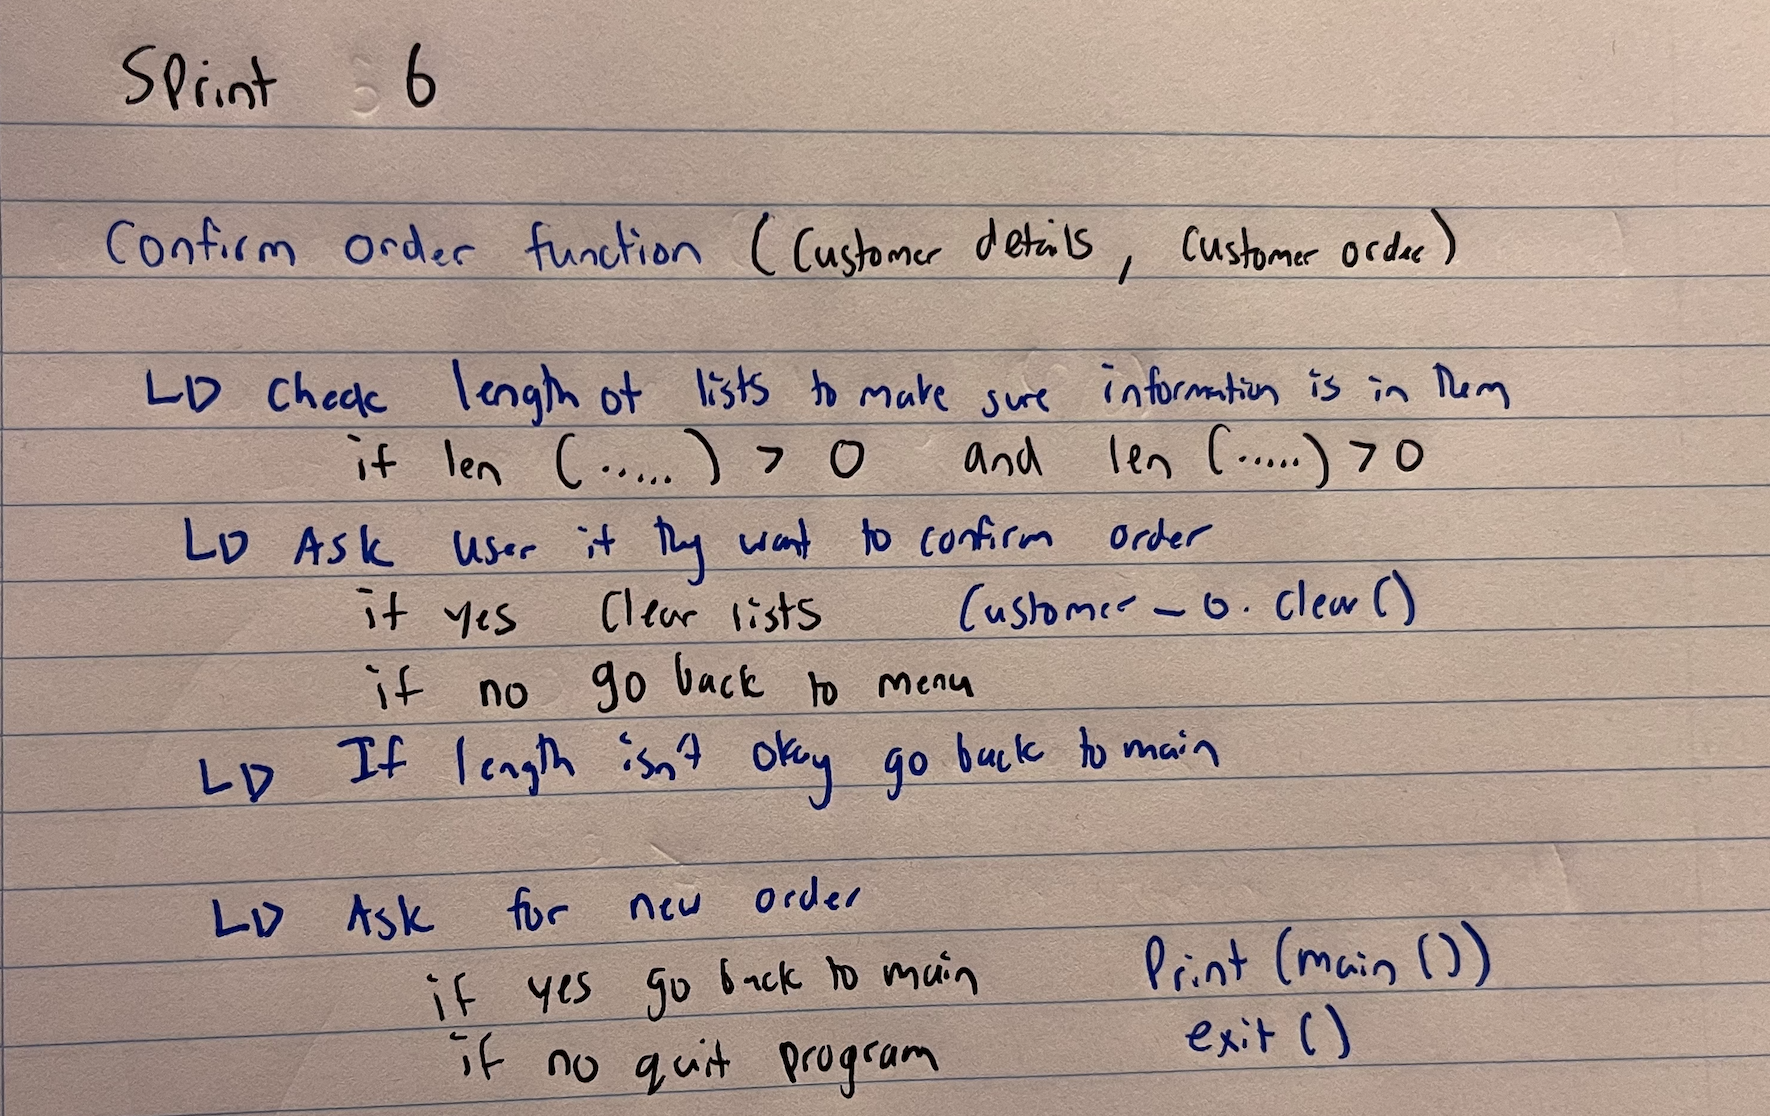 Sprint : 6
Confirm order function (Customer details, Customer order)
↳ Check length of lists to make sure information is in them
if len (......) > 0 and len (.....) > 0
↳ Ask user if they want to confirm order
if yes Clear lists Customer_o.clear()
if no go back to menu
↳ If length isn't okay go back to main
↳ Ask for new order
if yes go back to main Print (main ())
if no quit program exit ()